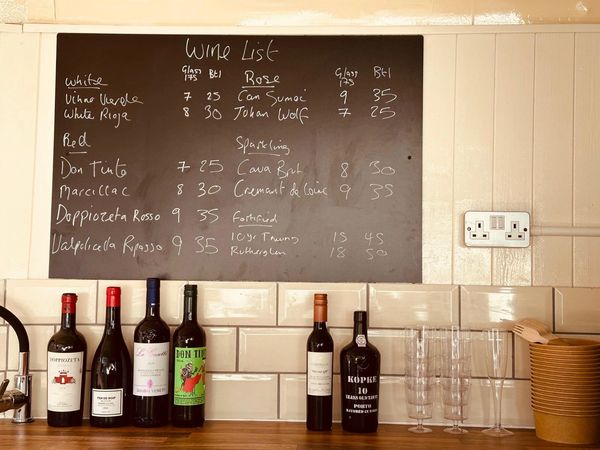 Wine List
White Glass 175 Btl
Vinho Verde 7 25
White Rioja 8 30
Red
Don Tinto 7 25
Marcillac 8 30
Doppiozeta Rosso 9 35
Valpolicella Ripasso 9 35
Rose Glass 175 Btl
Can Sumoi 9 35
Johan Wolf 7 25
Sparkling
Cava Brut 8 30
Cremant de Loire 9 35
Fortified
10yr Tawny 15 45
Rutherglen 18 50
DOPPIOZETA
DON TINTO
KOPKE
10
YEARS OLD TAWNY
PORTO